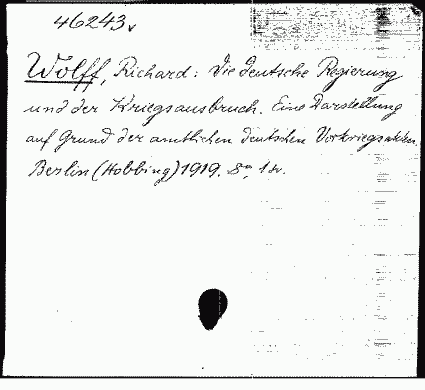 46243
Wolff, Richard: Die deutsche Regierung
und der Kriegsausbruch. Eine Darstellung
auf Grund der amtlichen deutschen Vorkriegsakten.
Berlin (Hobbing) 1919. 8°.